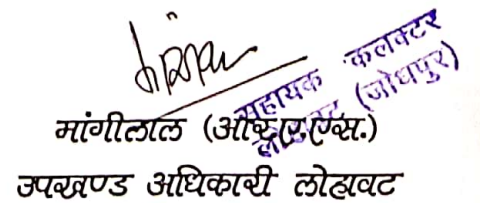 सहायक कलक्टर
लोहावट (जोधपुर)
मांगीलाल (आर.ए.एस.)
उपखण्ड अधिकारी लोहावट